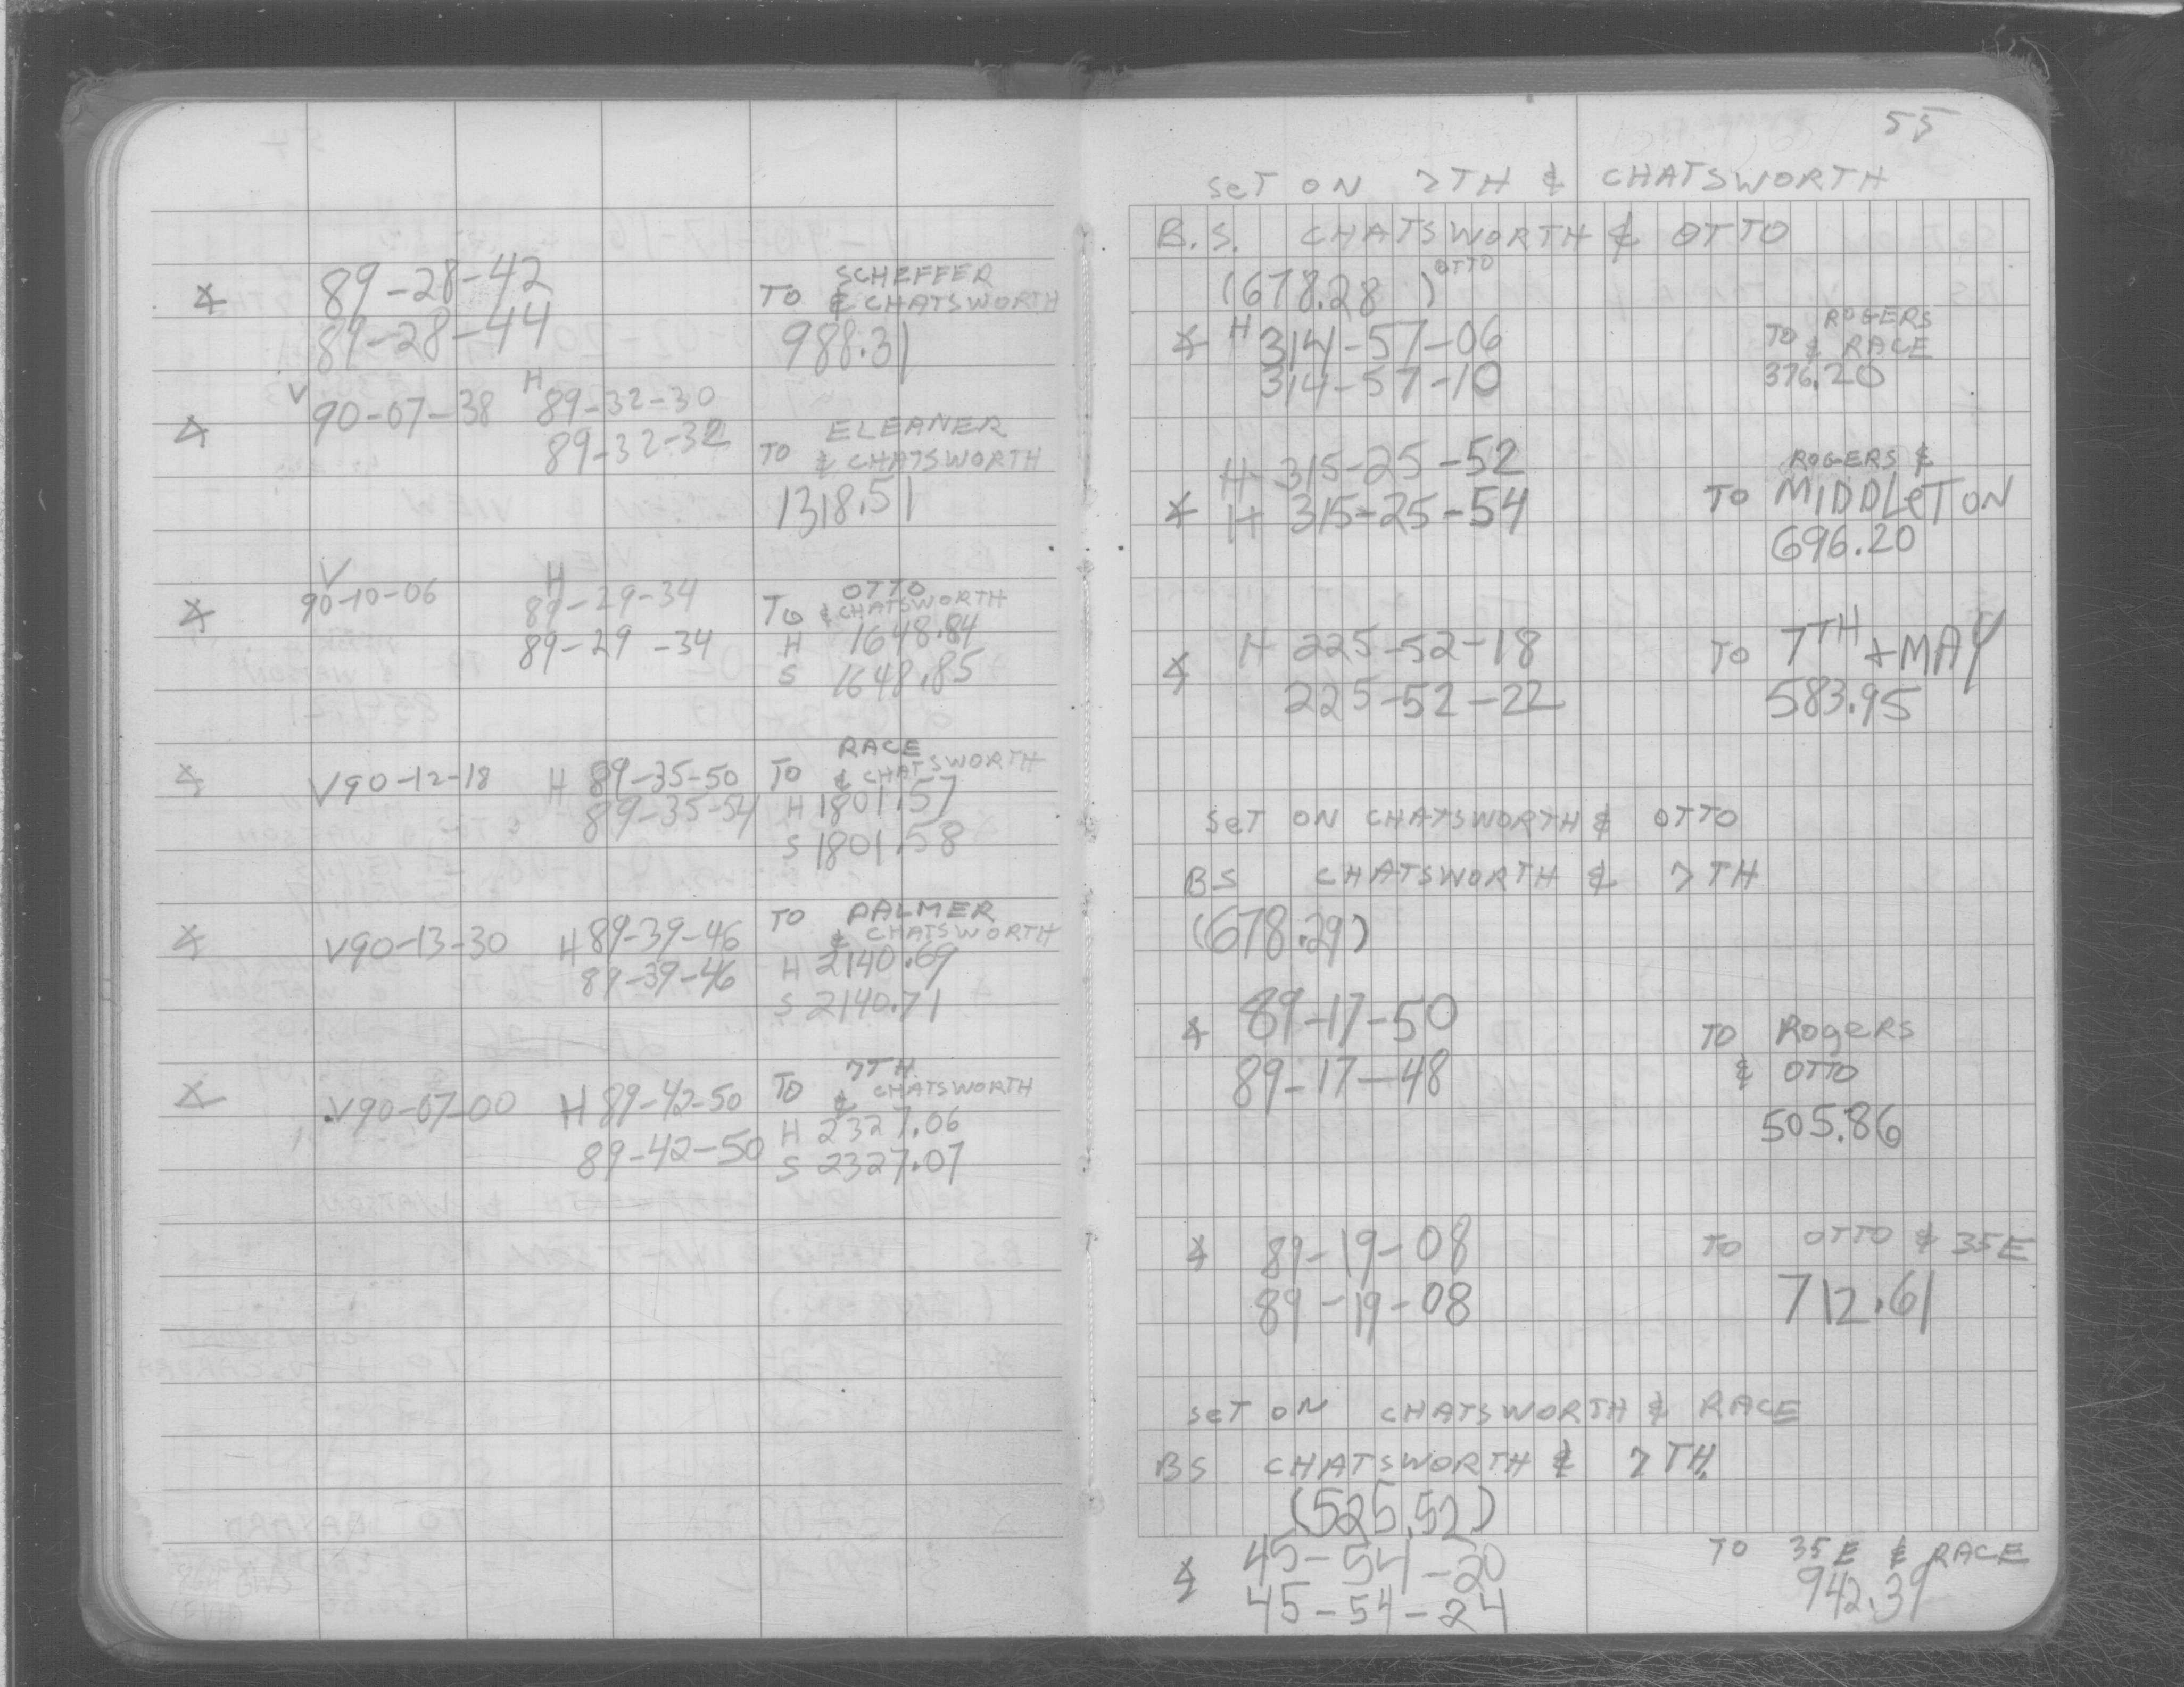 ∡ 89-28-42 TO SCHEFFER
& CHATSWORTH
89-28-44 988.31
∡ V 90-07-38 H 89-32-30 TO ELEANER
89-32-32 & CHATSWORTH
1318.51
∡ V 90-10-06 H 89-29-34 TO OTTO
& CHATSWORTH
89-29-34 H 1648.84
S 1648.85
∡ V 90-12-18 H 89-35-50 TO RACE
& CHATSWORTH
89-35-54 H 1801.57
S 1801.58
∡ V 90-13-30 H 89-39-46 TO PALMER
& CHATSWORTH
89-39-46 H 2140.69
S 2140.71
∡ V 90-07-00 H 89-42-50 TO 7TH
& CHATSWORTH
H 2327.06
89-42-50 S 2327.07
55
SeT ON 7TH & CHATSWORTH
B.S. CHATSWORTH & OTTO
(678.28) OTTO
∡ H 314-57-06 TO ROGERS
& RACE
314-57-10 376.20
H 315-25-52 ROGERS &
∡ H 315-25-54 TO MIDDLeTON
696.20
∡ H 225-52-18 TO 7TH + MAY
225-52-22 583.95
SeT ON CHATSWORTH & OTTO
BS CHATSWORTH & 7TH
(678.29)
∡ 89-17-50 TO RogeRS
89-17-48 & OTTO
505.86
∡ 89-19-08 TO OTTO & 35E
89-19-08 712.61
SeT ON CHATSWORTH & RACE
BS CHATSWORTH & 7TH.
(525.52)
∡ 45-54-20 TO 35E & RACE
45-54-24 942.39